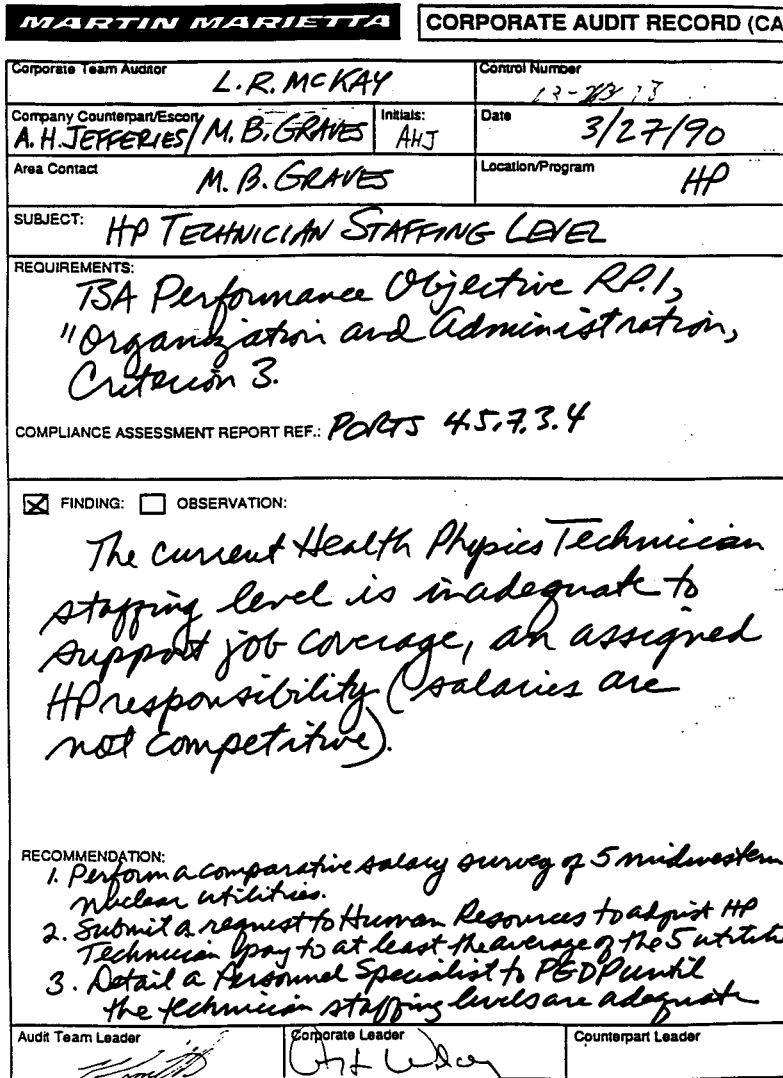 MARTIN MARIETTA CORPORATE AUDIT RECORD (CA
Corporate Team Auditor L.R. McKAY Control Number
Company Counterpart/Escort A.H. JEFFERIES/ M.B. GRAVES Initials: AHJ Date 3/27/90
Area Contact M.B. GRAVES Location/Program HP
SUBJECT: HP TECHNICIAN STAFFING LEVEL
REQUIREMENTS:
TSA Performance Objective RP.1,
"Organization and Administration,
Criterion 3.
COMPLIANCE ASSESSMENT REPORT REF.: PORTS 4.5.7.3.4
FINDING: OBSERVATION:
The current Health Physics Technician
staffing level is inadequate to
support job coverage, an assigned
HP responsibility (salaries are
not competitive).
RECOMMENDATION:
1. Perform a comparative salary survey of 5 midwestern
nuclear utilities.
2. Submit a request to Human Resources to adjust HP
Technician pay to at least the average of the 5 utiliti
3. Detail a Personnel Specialist to PGDP until
the technician staffing levels are adequate
Audit Team Leader Corporate Leader Counterpart Leader